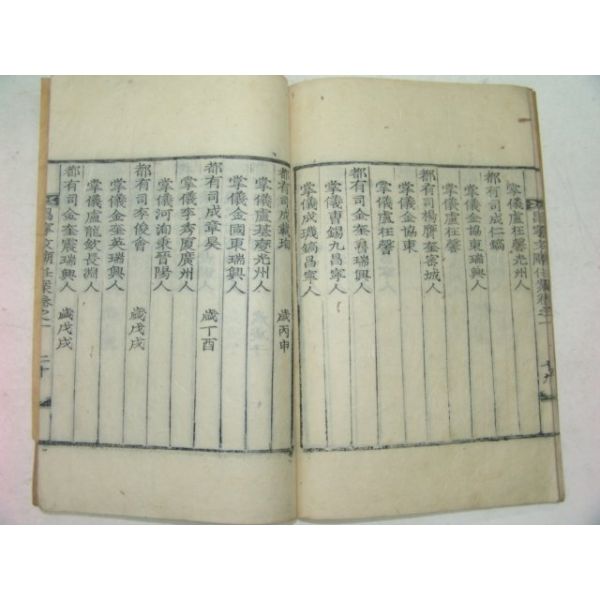 掌儀盧在馨光州人
都有司成仁鎬
掌儀金協東瑞興人
掌儀盧在馨
都有司楊濟奎密城人
掌儀金協東
掌儀盧在馨
都有司金奎熹瑞興人
掌儀曺錫九昌寧人
掌儀成璣鎬昌寧人
都有司成載 歲丙申
掌儀盧基 光州人
掌儀金國東瑞興人
都有司成章昊 歲丁酉
掌儀李秀厦廣州人
掌儀河洵東晉陽人
都有司李俊會 歲戊戌
掌儀金奎英瑞興人
掌儀盧龍欽長淵人
都有司金奎震瑞興人 歲戊戌
昌寧文廟任案卷之一 二十